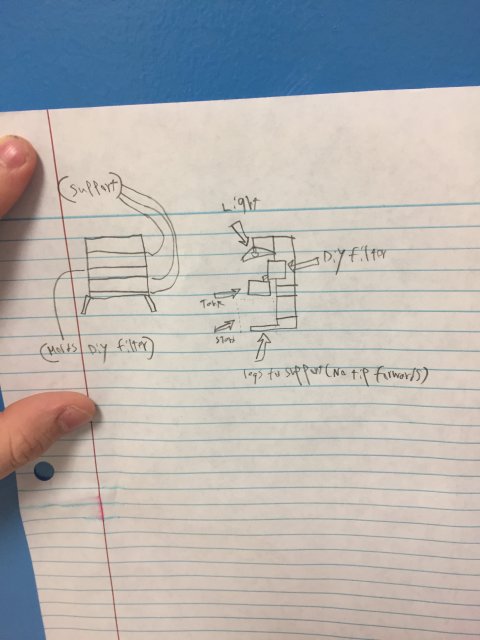 (Support)
Light
DiY filter
Tank
(Holds DiY filter)
legs to support (No tip forwards)